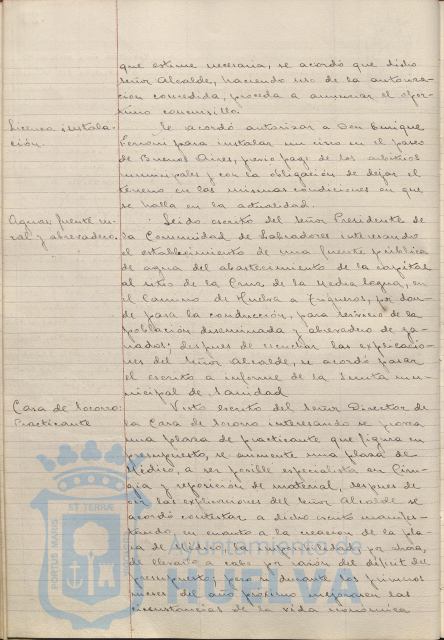 que estime necesaria, se acordó que dicho
señor Alcalde, haciendo uso de la autoriza-
ción concedida, proceda a anunciar el opor-
tuno concursillo.
Licencia instala-
ción.
Se acordó autorizar a Don Enrique
para instalar un circo en el paseo
de Buenos Aires, previo pago de los arbitrios
municipales y con la obligación de dejar el
terreno en las mismas condiciones en que
se halla en la actualidad.
Aguas, fuente ru-
ral y abrevadero.
Leido escrito del Señor Presidente de
la Comunidad de Labradores interesando
el establecimiento de una fuente pública
de agua del abastecimiento de la capital
al sitio de la Cruz de la Media legua, en
el Camino de Huelva a Trigueros, por don-
de pasa la conducción, para servicio de la
población diseminada y abrevadero de ga-
nados; despues de escuchar las explicacio-
nes del Señor Alcalde, se acordó pasar
el escrito a informe de la Junta mu-
nicipal de Sanidad
Casa de Socorro:
Practicante
Visto escrito del Señor Director de
la Casa de Socorro interesando se provea
una plaza de practicante que figura en
presupuesto, se aumente una plaza de
Médico, a ser posible especialista en Ciru-
gia y reposición de material, despues de
oir las explicaciones del Señor Alcalde se
acordó contestar a dicho escrito manifes-
tando, en cuanto a la creacion de la pla-
za de Médico, la imposibilidad por ahora,
de llevarlo a cabo por razón del déficit del
presupuesto; pero si durante los primeros
meses del año próximo mejorasen las
circunstancias de la vida económica
ET TERRÆ
PORTUS MARIS
Ayuntamiento de
HUELVA